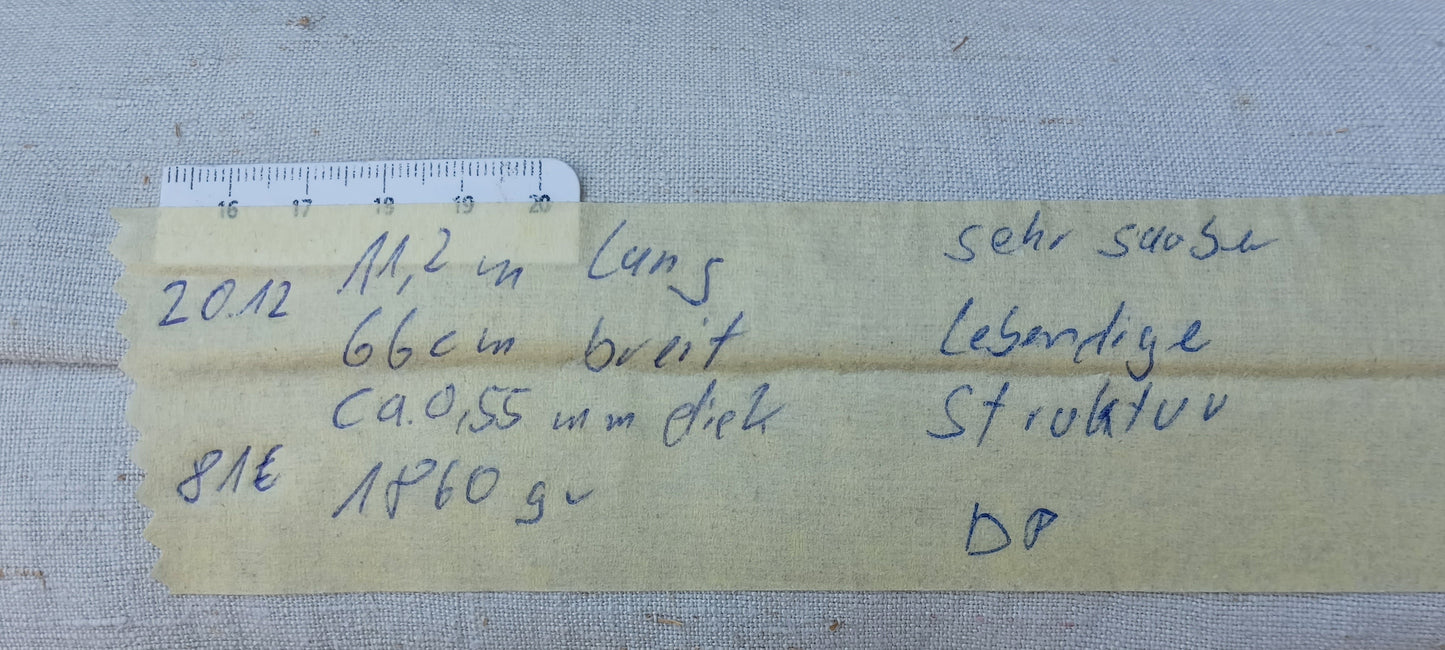 16 17 18 19 20
11,2 m lang
20.12
66cm breit
ca. 0,55 mm dick
81€
1860 gr
sehr sauber
Lebendige
Struktur
DP